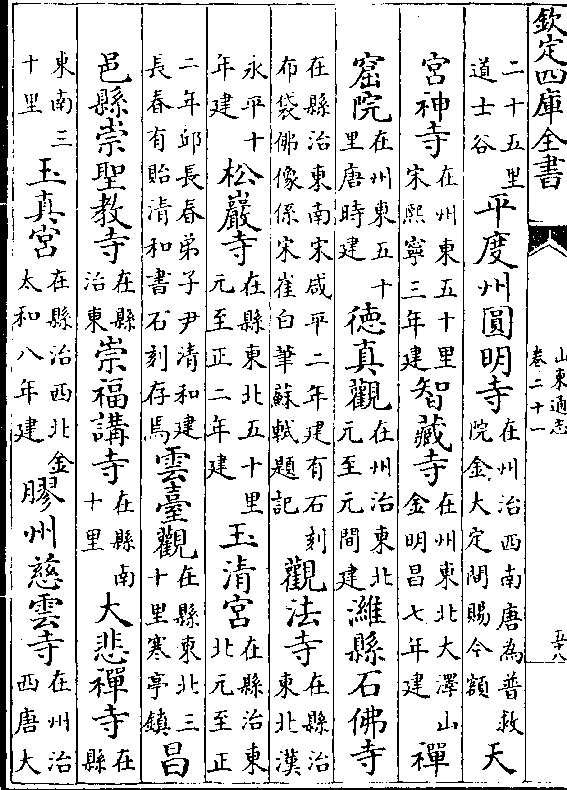 欽定四庫全書
山東通志
卷二十一
五十八
二十五里道士谷平度州圓明寺在州治西南唐為普救院金大定間賜今額天
宮神寺在州東五十里宋熙寧三年建智藏寺在州東北大澤山金明昌七年建禪
窟院在州東五十里唐時建徳真觀在州治東北元至元間建濰縣石佛寺
在縣治東南宋咸平二年建有石刻布袋佛像係宋崔白筆蘇軾題記觀法寺在縣治東北漢
永平十年建松巖寺在縣東北五十里元至正二年建玉清宮在縣治東北元至正
二年邱長春弟子尹清和建長春有貽清和書石刻存焉雲臺觀在縣東北三十里寒亭鎮昌
邑縣崇聖教寺在縣治東崇福講寺在縣南十里大悲禪寺在縣
東南三十里玉真宮在縣治西北金太和八年建膠州慈雲寺在州治西唐大